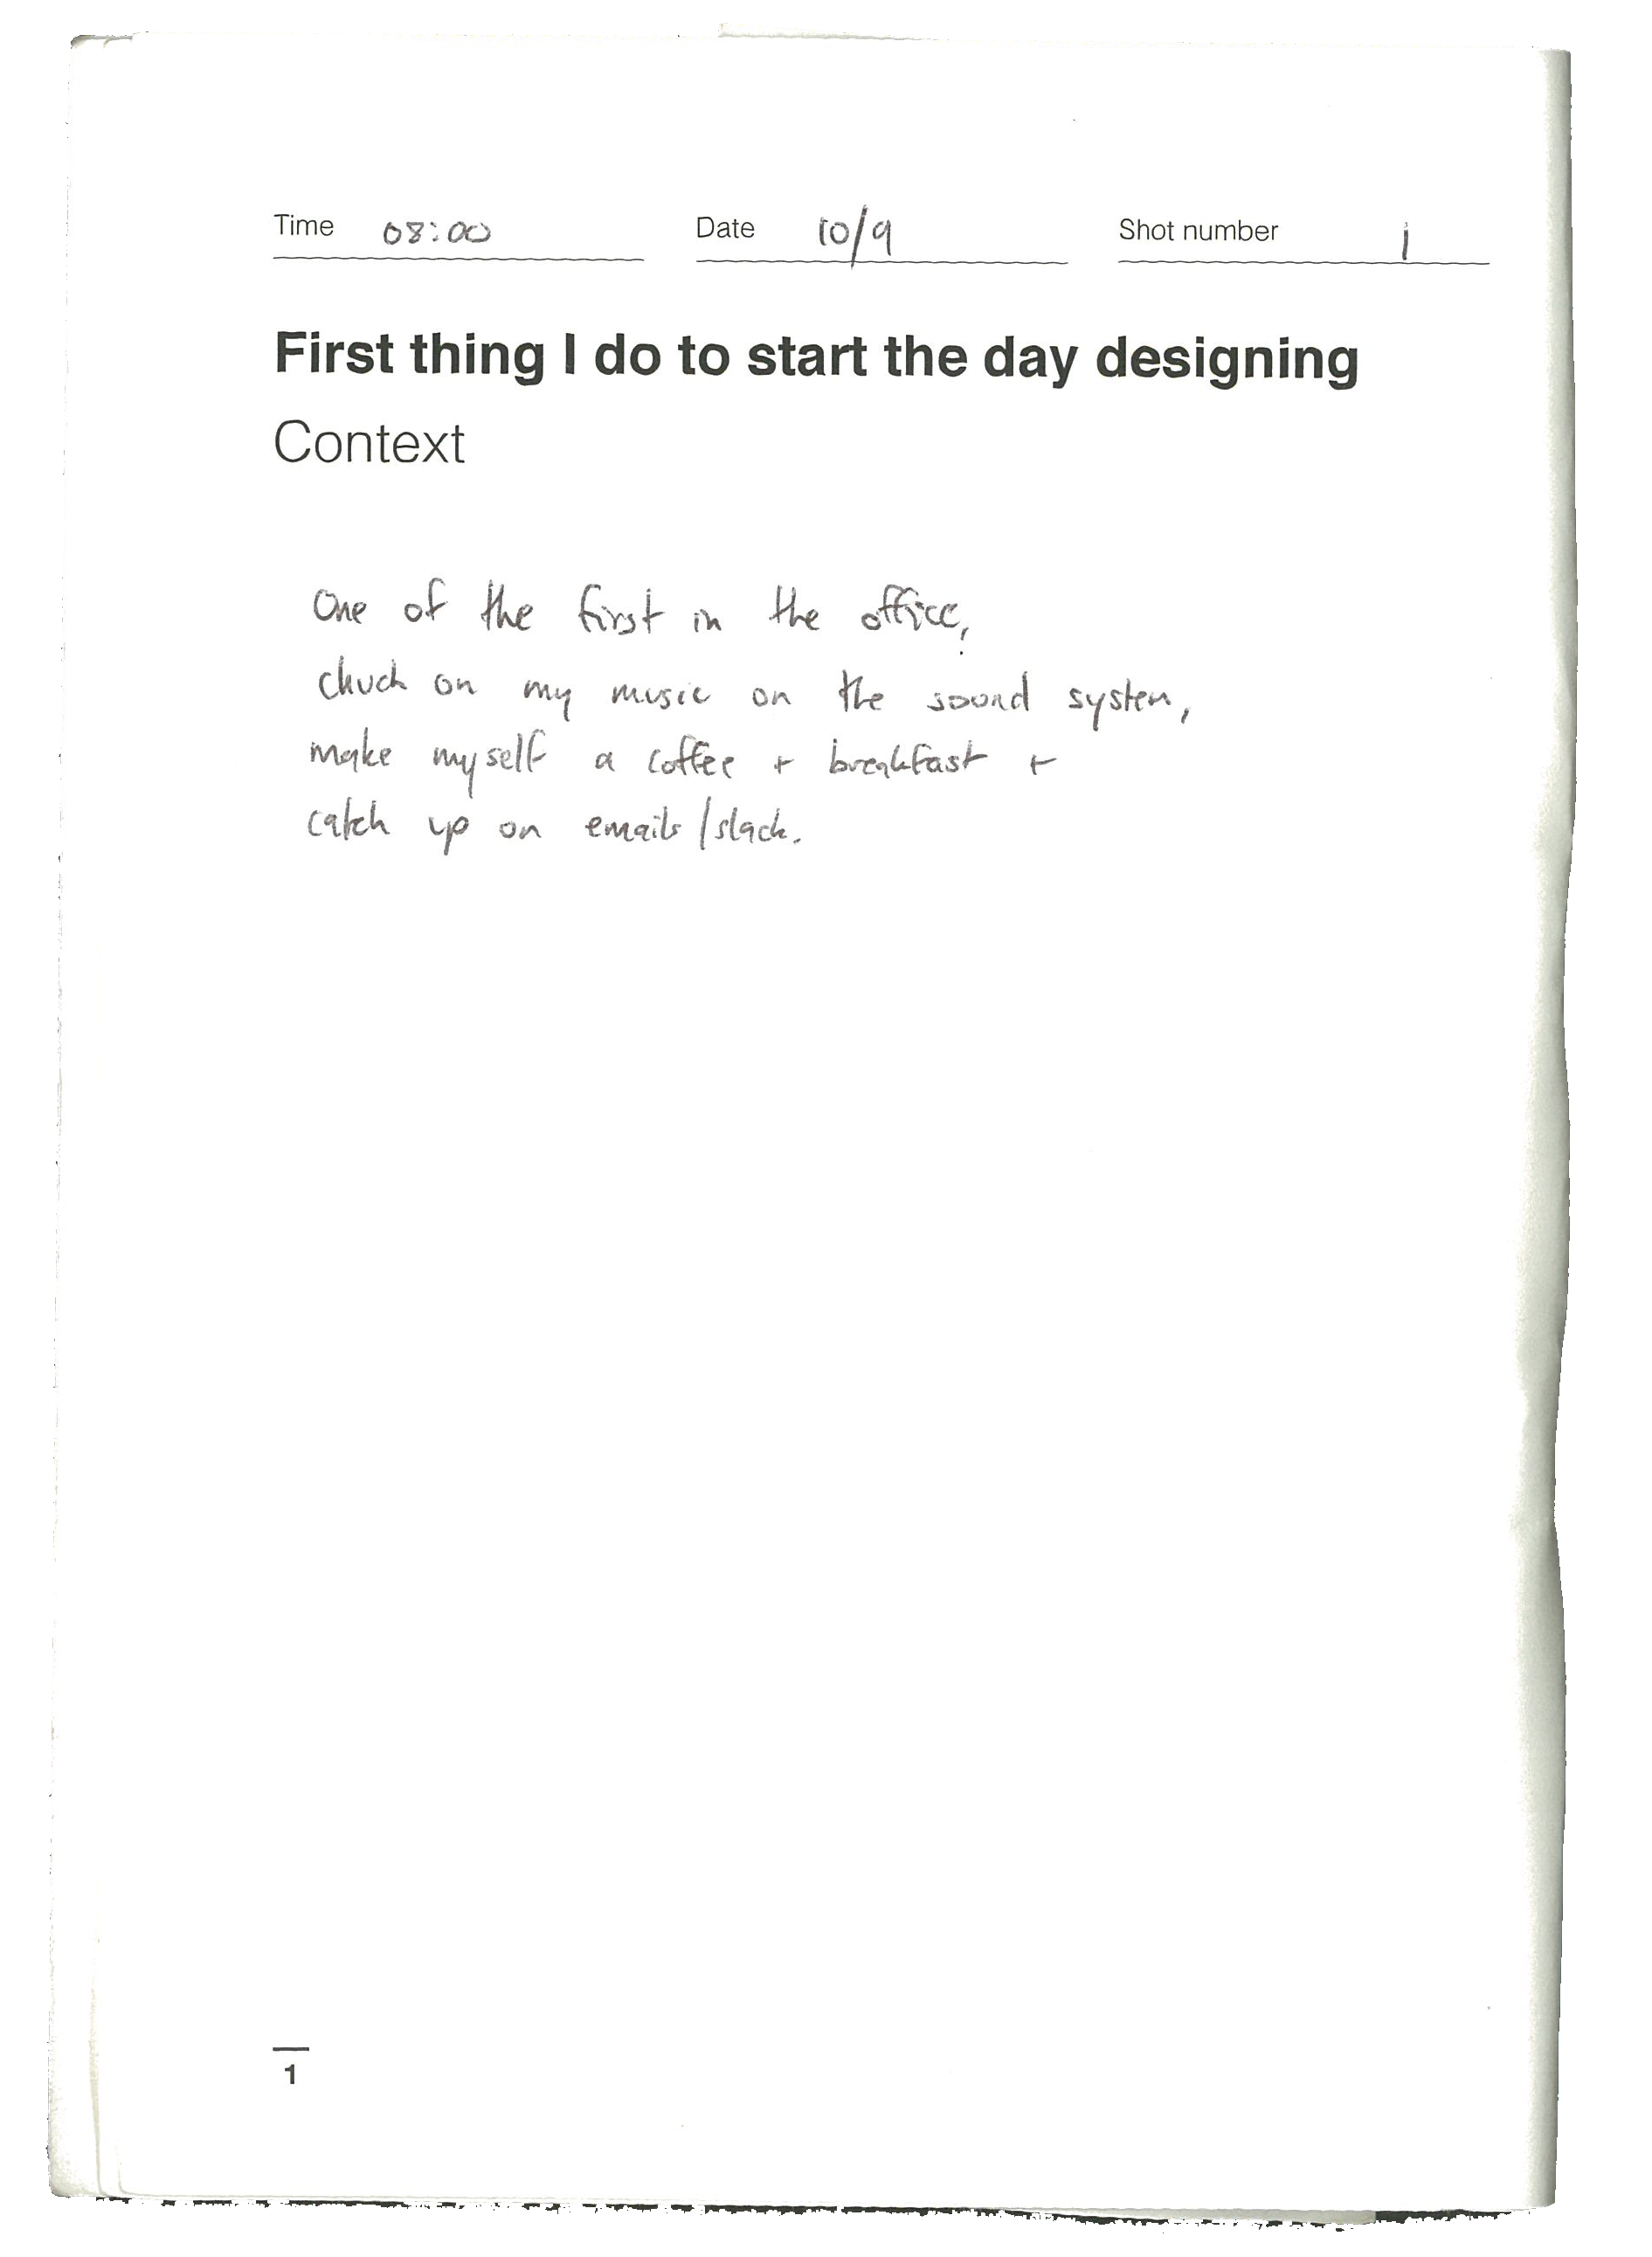 Time 08:00 Date 10/9 Shot number 1
First thing I do to start the day designing
Context
One of the first in the office,
chuck on my music on the sound system,
make myself a coffee + breakfast +
catch up on emails/slack.
1